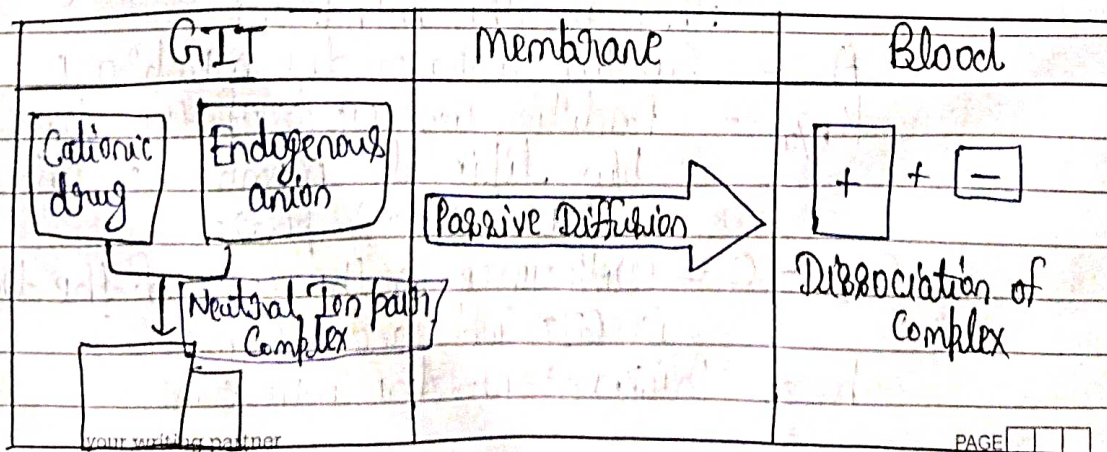 GIT
Membrane
Blood
Cationic
drug
Endogenous
anion
Neutral Ion pair
Complex
Passive Diffusion
+ + -
Dissociation of
Complex
your writing partner
PAGE